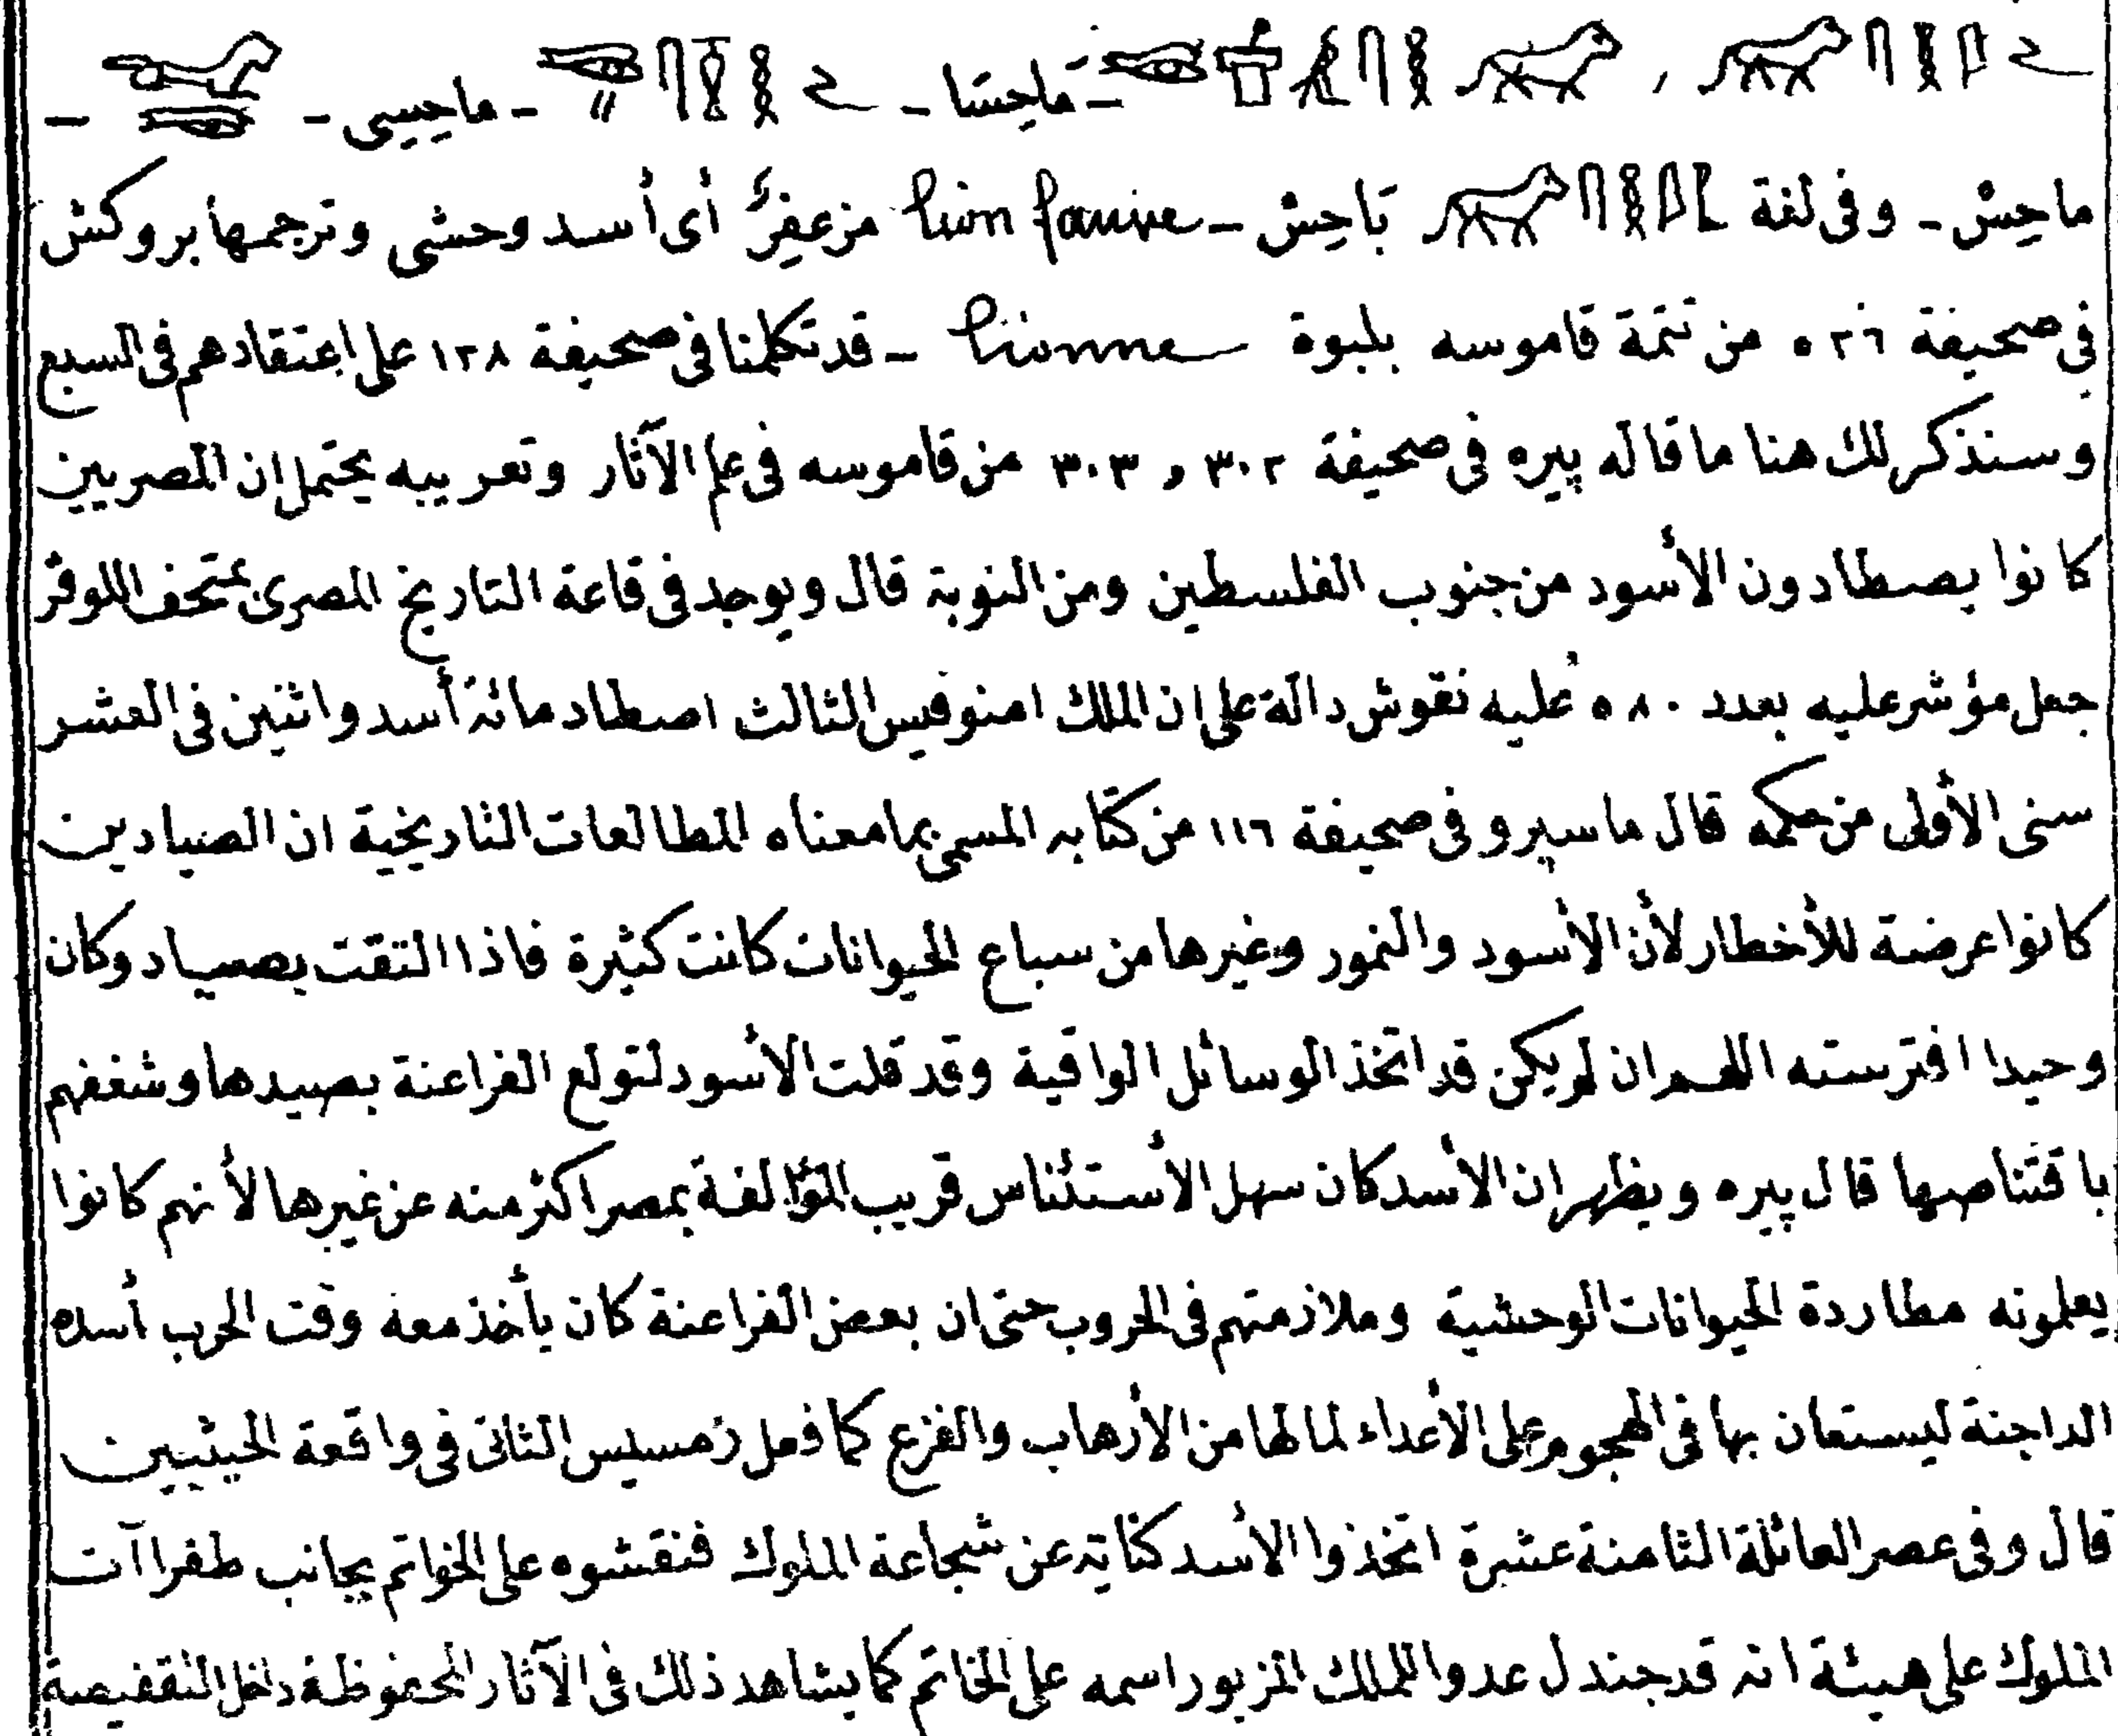 - ماحِسَا - ماحِيسِى -
ماحِسْ - وفى لغة بَاحِسْ - lion fauve مزعفِرٌ أى أسد وحشى وترجمها بروكش
فى صحيفة ٥٢٦ من تتمة قاموسه بلبوة lionne - قد تكلمنا فى صحيفة ١٢٨ على اعتقادهم فى السبع
وسنذكر لك هنا ما قاله پيره فى صحيفة ٣٠٢ و ٣٠٣ من قاموسه فى علم الآثار وتعريبه يحتمل ان المصريين
كانوا يصطادون الأسود من جنوب الفلسطين ومن النوبة قال ويوجد فى قاعة التاريخ المصرى بمتحف اللوڤر
جعل مؤشر عليه بعدد ٥٨٠ عليه نقوش دالة على ان الملك امنوفيس الثالث اصطاد مائة أسد واثنين فى العشر
سنى الأولى من حكمه قال ماسپرو فى صحيفة ١١٦ من كتابه المسمى بما معناه المطالعات التاريخية ان الصيادين
كانوا عرضة للأخطار لأن الأسود والنمور وغيرها من سباع الحيوانات كانت كثيرة فاذا التقت بصياد وكان
وحيدا افترسته اللهم ان لم يكن قد اتخذ الوسائل الواقية وقد قلت الأسود لتولع الفراعنة بصيدها وشغفهم
باقتناصها قال پيره ويظهر ان الأسد كان سهل الأستئناس قريب المؤالفة بمصر اكثر منه عن غيرها لأنهم كانوا
يعلمونه مطاردة الحيوانات الوحشية وملازمتهم فى الحروب حتى ان بعض الفراعنة كان يأخذ معه وقت الحرب أسده
الداجنة ليستعان بها فى الهجوم على الأعداء لما لها من الأرهاب والفزع كما فعل رمسيس الثانى فى واقعة الحيثيين
قال وفى عصر العائلة الثامنة عشرة اتخذوا الأسد كناية عن شجاعة الملوك فنقشوه على الخواتم بجانب طغراآت
الملوك على هيئة انه قد جندل عدوا للملك المزبور اسمه على الخاتم كما يشاهد ذلك فى الآثار المحفوظة داخل القفيصة